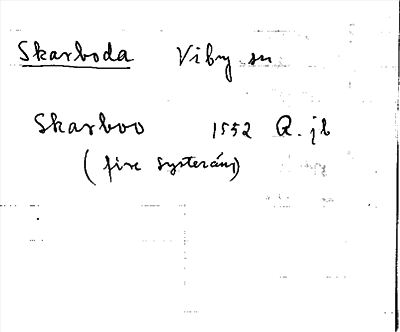 Skarboda Viby sn
Skarboo 1552 Q. jb
(fire systerán)